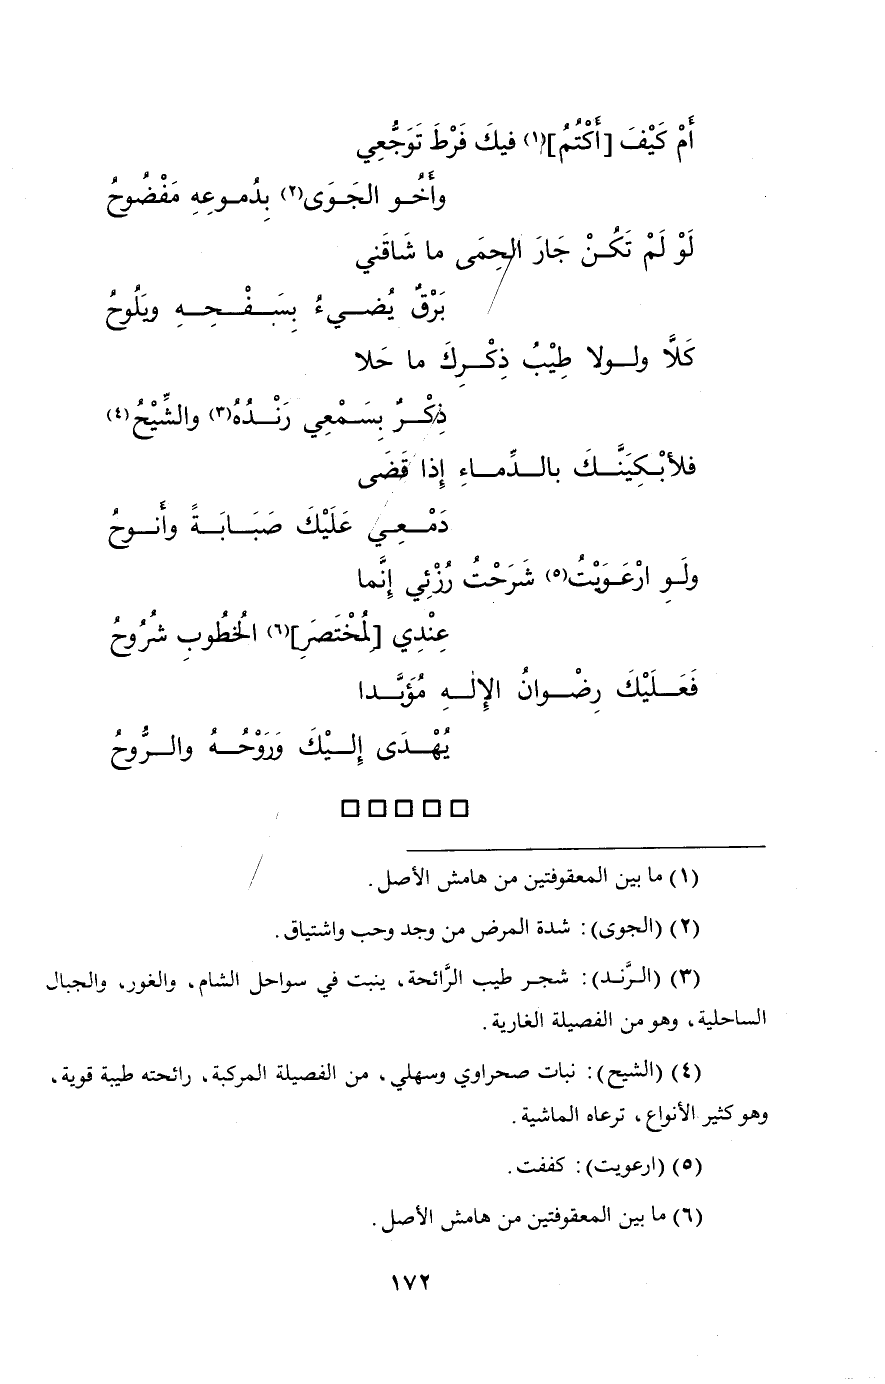 أَمْ كَيْفَ [أَكْتُمُ](١) فيكَ فَرْطَ تَوَجُّعِي
وأَخُو الجَوَى(٢) بِدُموعِهِ مَفْضُوحُ
لَوْ لَمْ تَكُنْ جَارَ الحِمَى ما شَاقَني
بَرْقٌ يُضيءُ بِسَفْحِهِ ويَلُوحُ
كَلَّا ولولا طِيْبُ ذِكْرِكَ ما حَلا
ذِكْرٌ بِسَمْعِي رَنْدُهُ(٣) والشِّيْحُ(٤)
فلأبْكِيَنَّكَ بالدِّماءِ إِذا قَضَى
دَمْعِي عَلَيْكَ صَبَابَةً وأَنوحُ
ولَو ارْعَوَيْتُ(٥) شَرَحْتُ رُزْئِي إِنَّما
عِنْدِي [لمُخْتَصَرِ](٦) الخُطُوبِ شُرُوحُ
فَعَلَيْكَ رِضْوانُ الإِلٰهِ مُؤَبَّدا
يُهْدَى إِلَيْكَ وَرَوْحُهُ والرُّوحُ
□□□□□
(١) ما بين المعقوفتين من هامش الأصل.
(٢) (الجوى): شدة المرض من وجد وحب واشتياق.
(٣) (الرَّند): شجر طيب الرَّائحة، ينبت في سواحل الشام، والغور، والجبال
الساحلية، وهو من الفصيلة الغارية.
(٤) (الشيح): نبات صحراوي وسهلي، من الفصيلة المركبة، رائحته طيبة قوية،
وهو كثير الأنواع، ترعاه الماشية.
(٥) (ارعويت): كففت.
(٦) ما بين المعقوفتين من هامش الأصل.
١٧٢